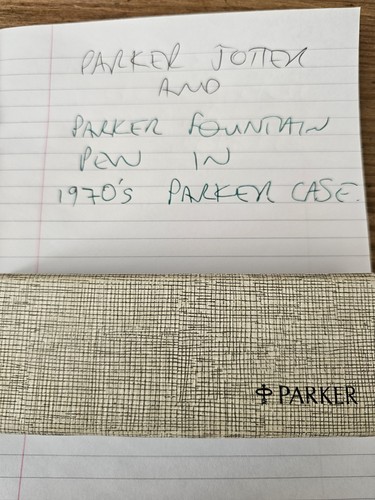 PARKER JOTTER
AND
PARKER FOUNTAIN
PEN IN
1970's PARKER CASE.
PARKER